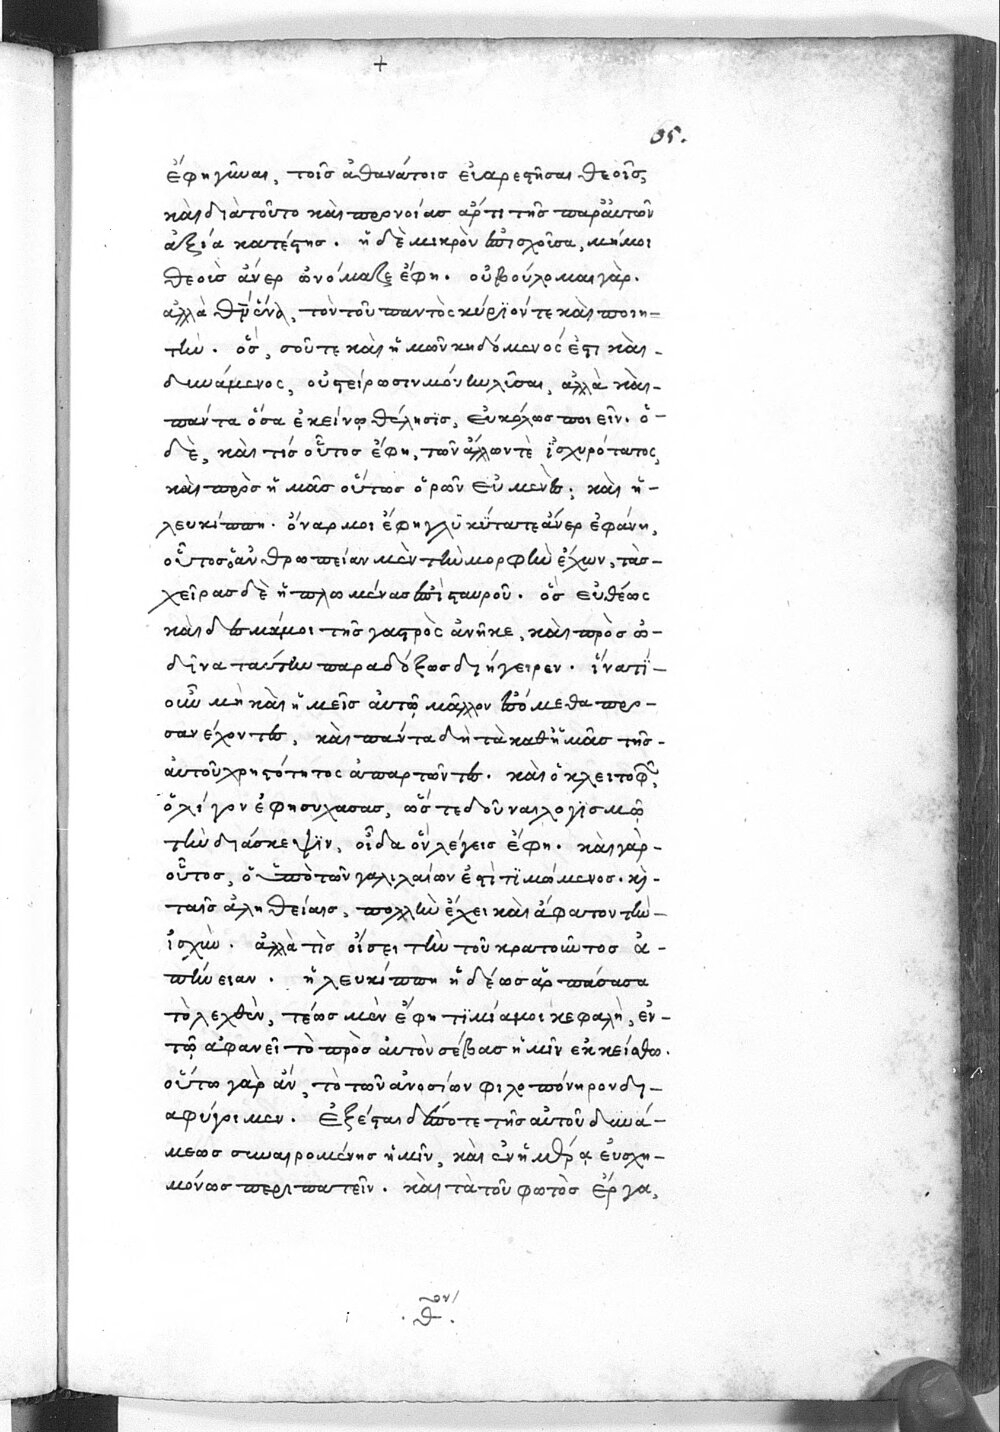 +
65.
ἔφη γῦναι, τοῖς ἀθανάτοις εὐαρεστῆσαι θεοῖς,
καὶ διὰ τοῦτο καὶ προνοίας ἄρτι τῆς παρ' αὐτῶν
ἀξία κατέστης. ἡ δὲ μικρὸν ἐπισχοῦσα, μή μοι
θεοὺς ἄνερ ὀνόμαζε ἔφη. οὐ βούλομαι γάρ.
ἀλλὰ θν ἕνα, τὸν τοῦ παντὸς κύριόν τε καὶ ποιη-
τήν. ὅς, σοῦ τε καὶ ἡμῶν κηδόμενός ἐστι καὶ
δυνάμενος, οὐ στείρωσιν μόνην λῦσαι, ἀλλὰ καὶ
πάντα ὅσα ἐκείνῳ θέλησις, εὐκόλως ποιεῖν. ὁ
δὲ, καὶ τίς οὗτος ἔφη, τῶν ἄλλων τὲ ἰσχυρότατος,
καὶ πρὸς ἡμᾶς οὕτως ὁρῶν εὐμενῶς; καὶ ἡ
λευκίππη. ὄναρ μοι ἔφη γλυκύτατε ἄνερ ἐφάνη,
οὗτος, ἀνθρωπείαν μὲν τὴν μορφὴν ἔχων, τὰς
χεῖρας δὲ ἡπλωμένας ἐπὶ σταυροῦ. ὃς εὐθέως
καὶ δεσμά μοι τῆς γαστρὸς ἀνῆκε, καὶ πρὸς ὠ-
δῖνα ταύτην παραδόξως διήγειρεν. ἵνα τί
οὖν μὴ καὶ ἡμεῖς αὐτῷ μᾶλλον ἑπόμεθα προ-
σανέχοντες, καὶ πάντα δὴ τὰ καθ' ἡμᾶς τῆς
αὐτοῦ χρηστότητος ἀπαρτῶντες. καὶ ὁ κλειτοφῶν
ὀλίγον ἐφησυχάσας, ὥστε δοῦναι λογισμῷ
τὴν διάσκεψιν, οἶδα ὃν λέγεις ἔφη. καὶ γὰρ
οὗτος, ὁ ὑπὸ τῶν γαλιλαίων ἐστὶ τιμώμενος. καὶ
ταῖς ἀληθείαις, πολλὴν ἔχει καὶ ἄφατον τὴν
ἰσχύν. ἀλλὰ τίς οἴσει τὴν τοῦ κρατοῦντος ἀ-
πήνειαν. ἡ λευκίππη ἡδέως ἁρπάσασα
τὸ λεχθὲν, τέως μὲν ἔφη τιμία μοι κεφαλὴ, ἐν
τῷ ἀφανεῖ τὸ πρὸς αὐτὸν σέβας ἡμῖν ἐκκείσθω.
οὕτω γὰρ ἂν, τὸ τῶν ἀνοσίων φιλοπόνηρον δι-
αφύγοιμεν. ἐξέσται δέποτε τῆς αὐτοῦ δυνά-
μεως συναιρομένης ἡμῖν, καὶ ἐν ἡμέρᾳ εὐσχη-
μόνως περιπατεῖν. καὶ τὰ τοῦ φωτὸς ἔργα,
θ